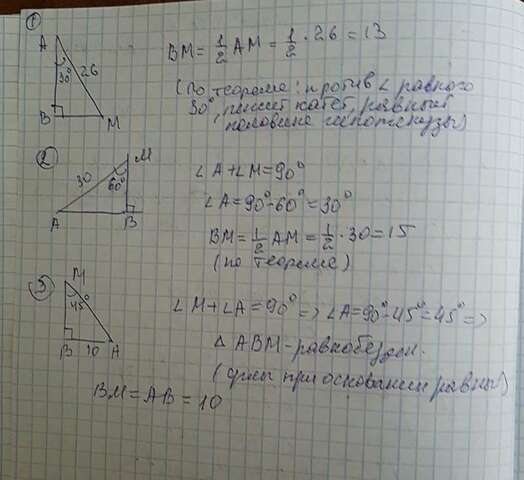 1
A
30°
26
B
M
BM = 1/2 AM = 1/2 · 26 = 13
(по теореме: против ∠ равного
30°, лежит катет, равный
половине гипотенузы)
2
M
30
60°
A
B
∠A+∠M=90°
∠A=90°-60°=30°
BM=1/2 AM = 1/2 · 30=15
(по теореме)
3
M
45°
B
10
A
∠M+∠A=90° => ∠A=90°-45°=45° =>
△ ABM - равнобедрен.
(углы при основании равны)
BM=AB=10